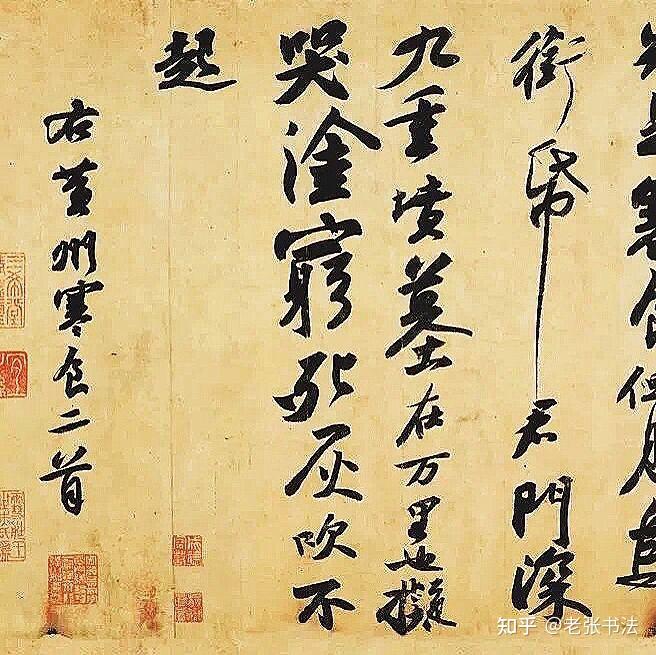 是寒食但見烏
銜帋君門深
九重墳墓在万里也擬
哭塗窮死灰吹不
起
右黃州寒食二首
知乎 @老张书法